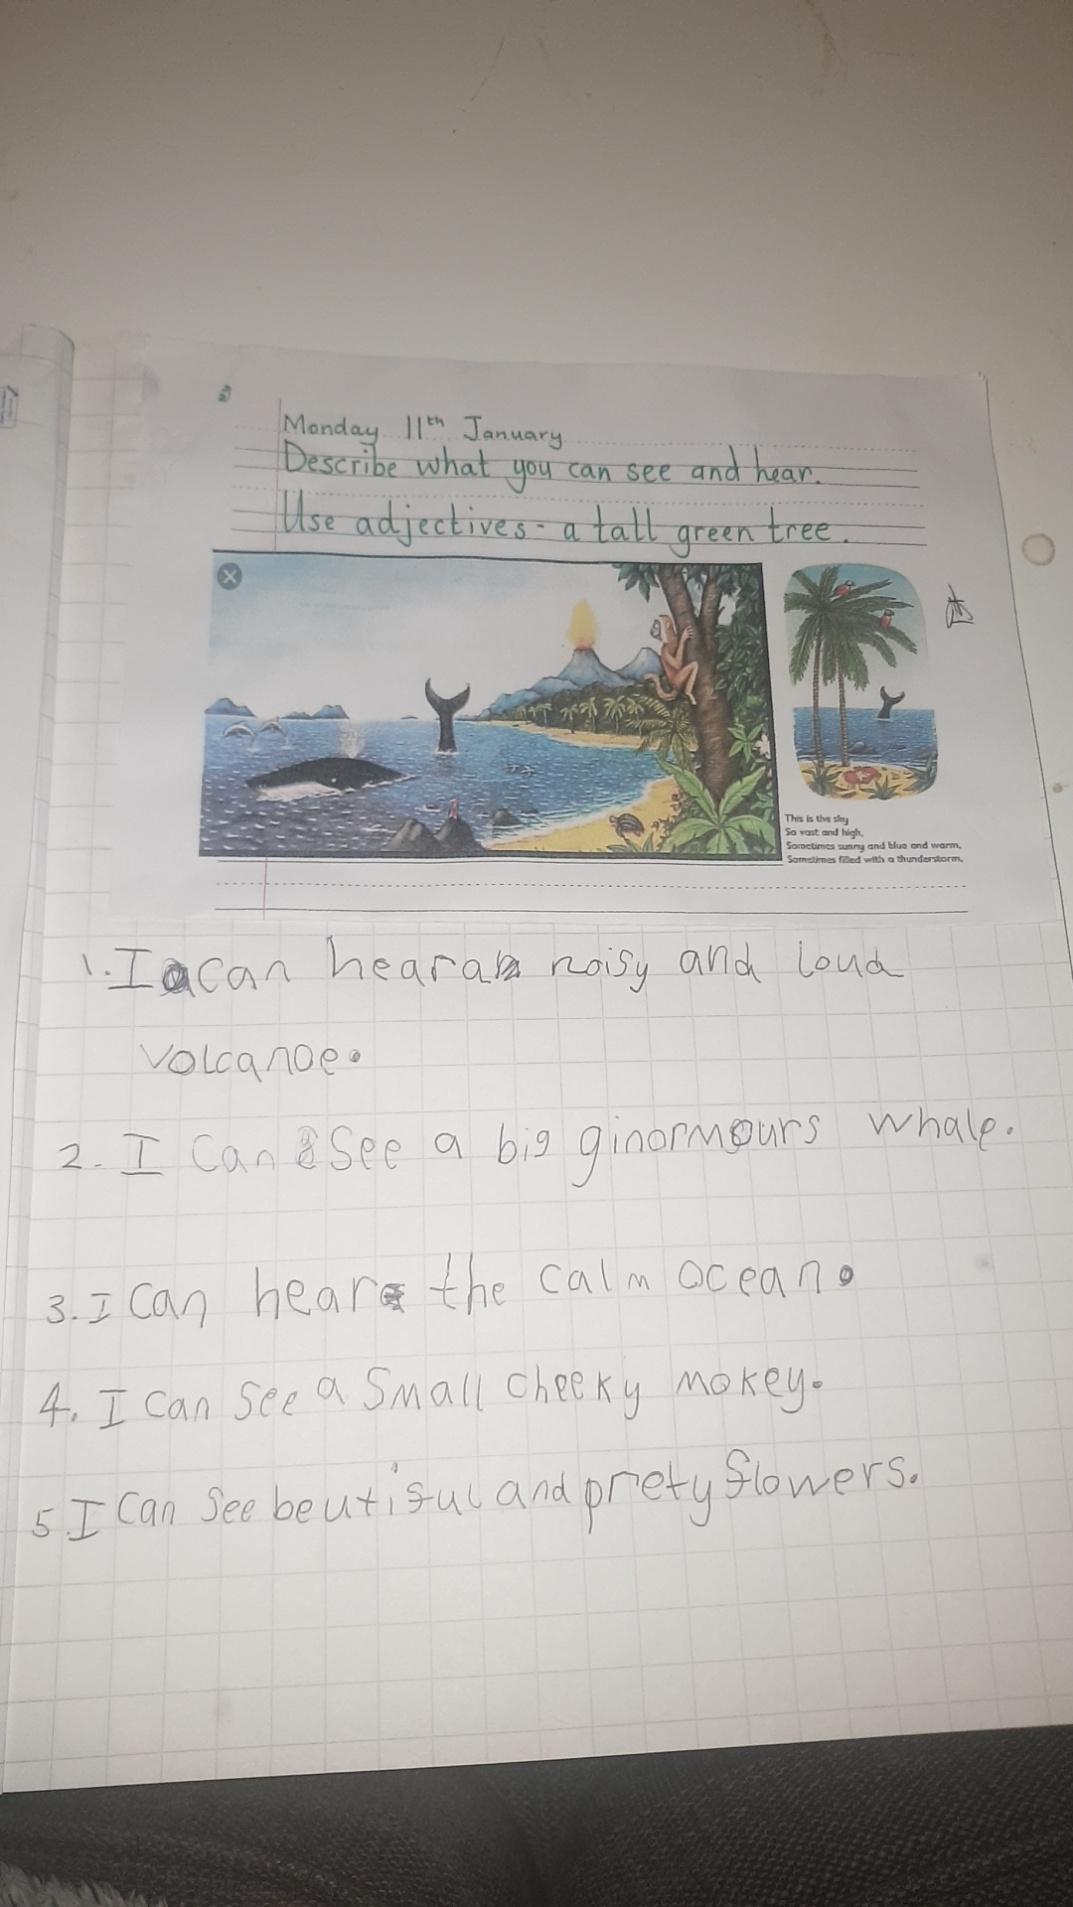 Monday 11th January
Describe what you can see and hear.
Use adjectives - a tall green tree.
This is the sky
So vast and high,
Sometimes sunny and blue and warm,
Sometimes filled with a thunderstorm,
1. I can hear a noisy and loud
volcanoe.
2. I can see a big ginormours whale.
3. I can hear the calm ocean.
4. I can see a small cheeky mokey.
5. I can see beutiful and prety flowers.